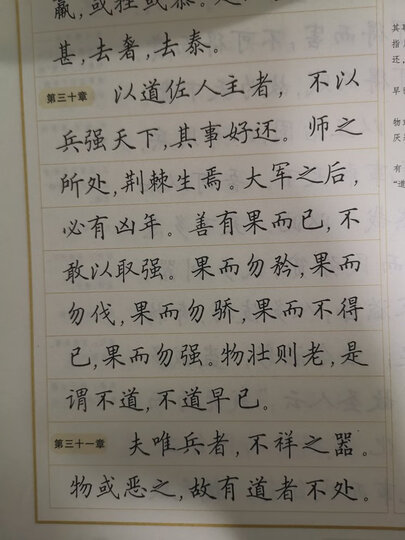 羸,或挫或隳。
甚,去奢,去泰。
第三十章 以道佐人主者,不以
兵强天下,其事好还。师之
所处,荆棘生焉。大军之后,
必有凶年。善有果而已,不
敢以取强。果而勿矜,果而
勿伐,果而勿骄,果而不得
已,果而勿强。物壮则老,是
谓不道,不道早已。
第三十一章 夫唯兵者,不祥之器。
物或恶之,故有道者不处。